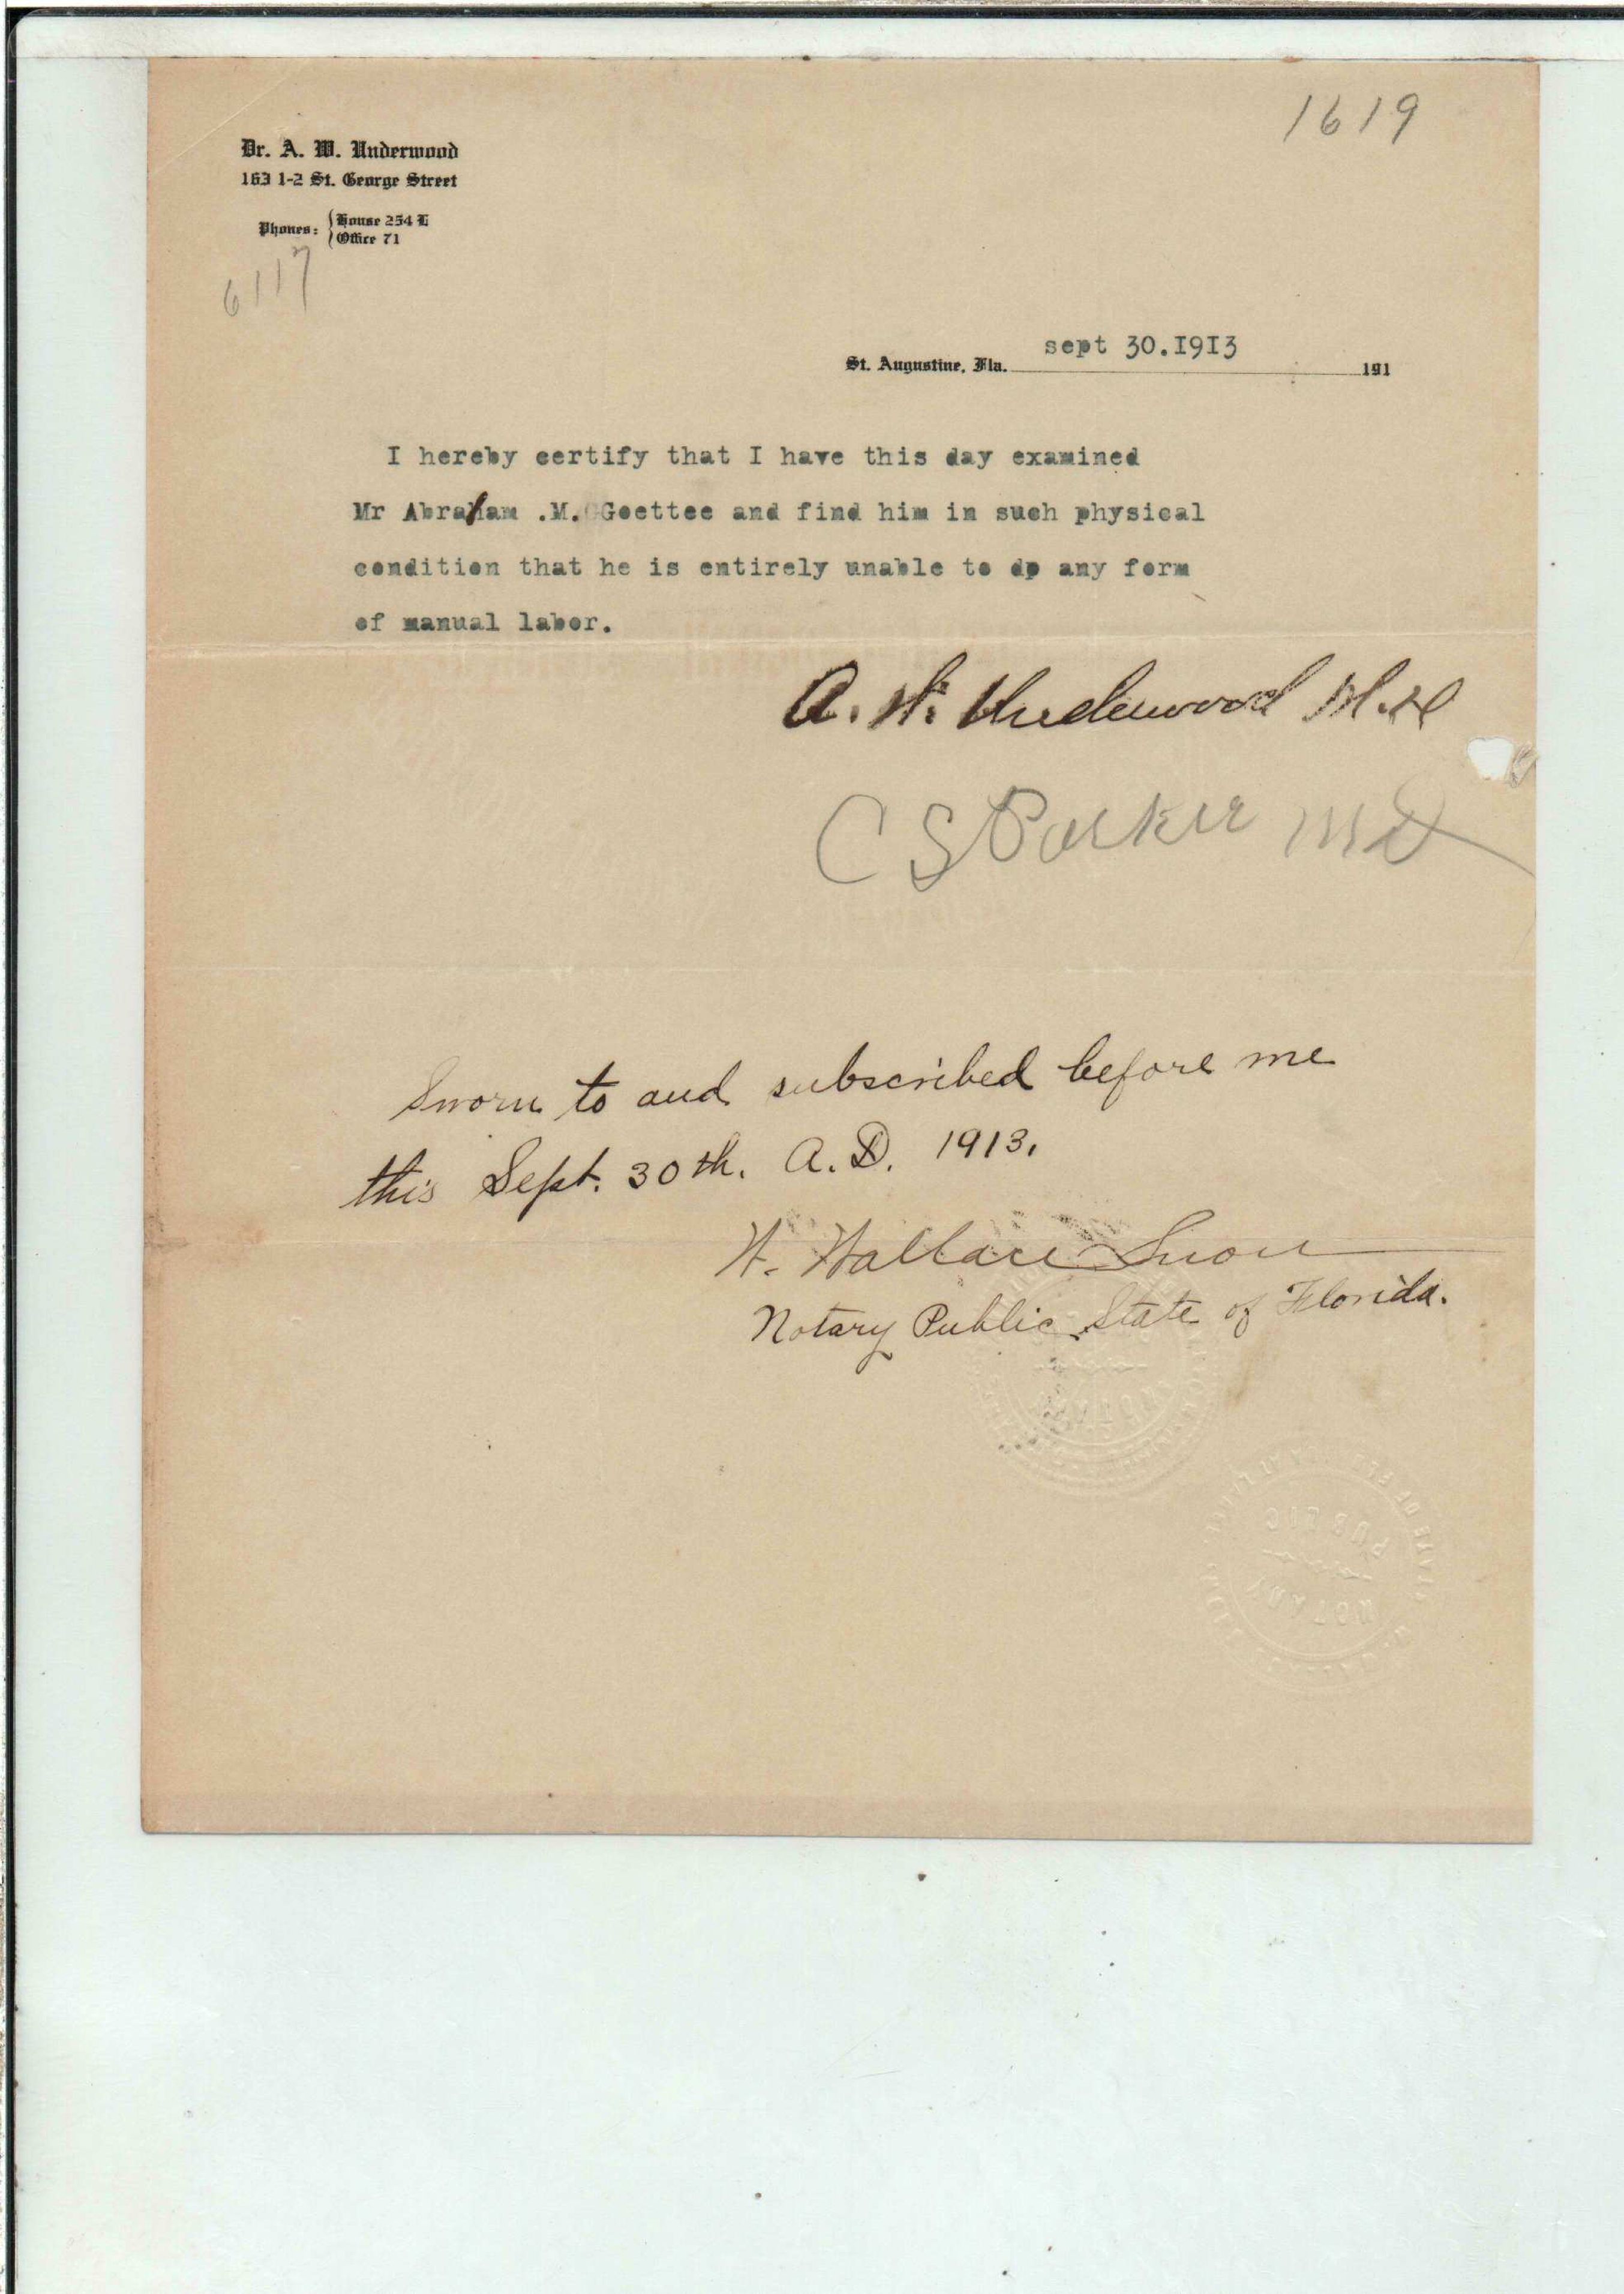 1619
Dr. A. W. Underwood
163 1-2 St. George Street
Phones: House 254 L
Office 71
6117
St. Augustine, Fla. sept 30.1913 191
I hereby certify that I have this day examined
Mr Abraham .M. Goettee and find him in such physical
condition that he is entirely unable to dp any form
of manual labor.
A. W. Underwood M.D
C S Parker MD
Sworn to and subscribed before me
this Sept. 30th. A.D. 1913.
W. Wallace Snow
Notary Public State of Florida.
NOTARY
PUBLIC